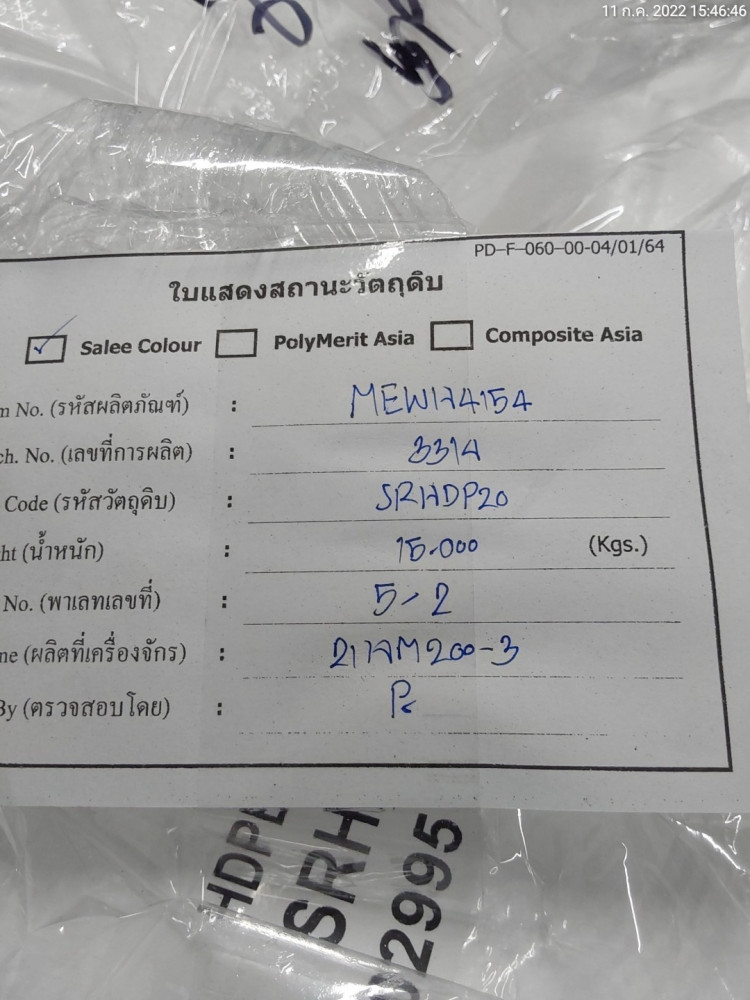 11 ก.ค. 2022 15:46:46
PD-F-060-00-04/01/64
ใบแสดงสถานะวัตถุดิบ
Salee Colour PolyMerit Asia Composite Asia
No. (รหัสผลิตภัณฑ์) :
ch. No. (เลขที่การผลิต) : 3314
Code (รหัสวัตถุดิบ) : SRHDP20
ht (น้ำหนัก) : 15.000 (Kgs.)
No. (พาเลทเลขที่) : 5-2
ne (ผลิตที่เครื่องจักร) :
By (ตรวจสอบโดย) :
HDPE
SRH
02995